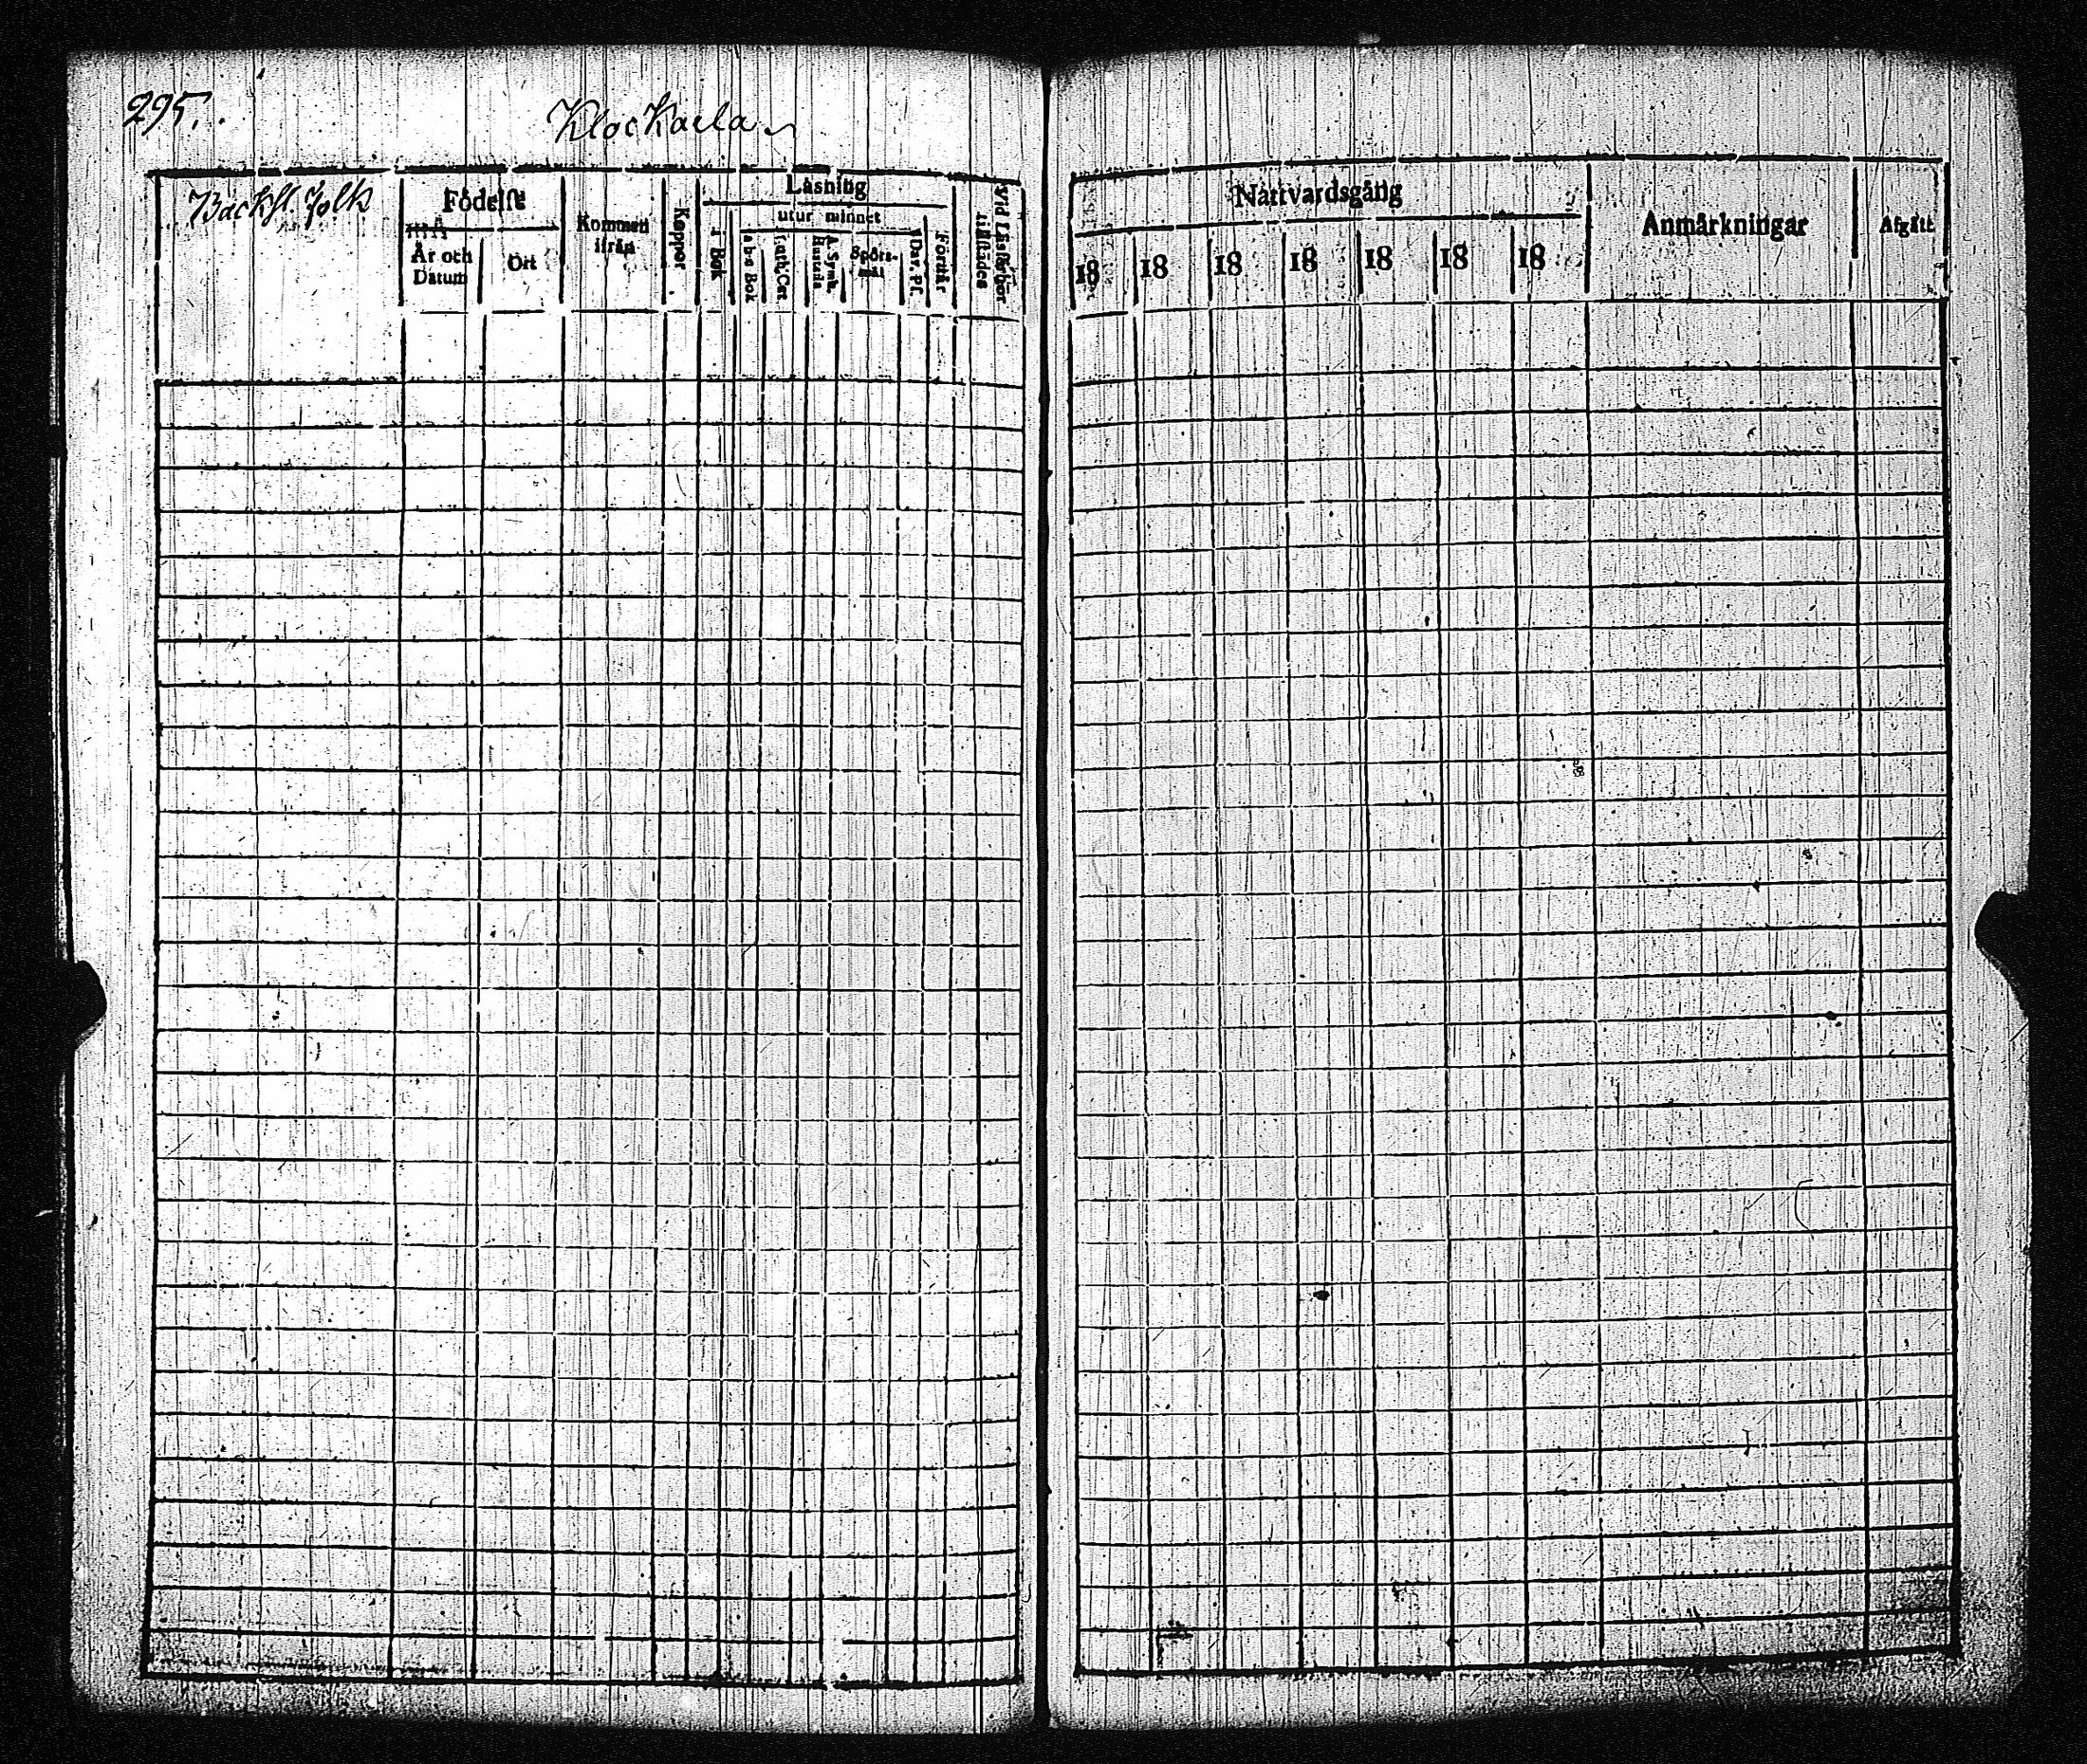 295.
Klockarla
Backst. Folk
Födelse
År och Datum
Ort
Kommen ifrån
Koppor
Läsning
i Bok
utur minnet
a b c Bok
Luth. Cat
A. Symb. Hustafla
Spörsmål
Dav. Ps.
Förstår
Vid Läsförhör tillstädes
Nattvardsgång
18 18 18 18 18 18 18
Anmärkningar
Afgått